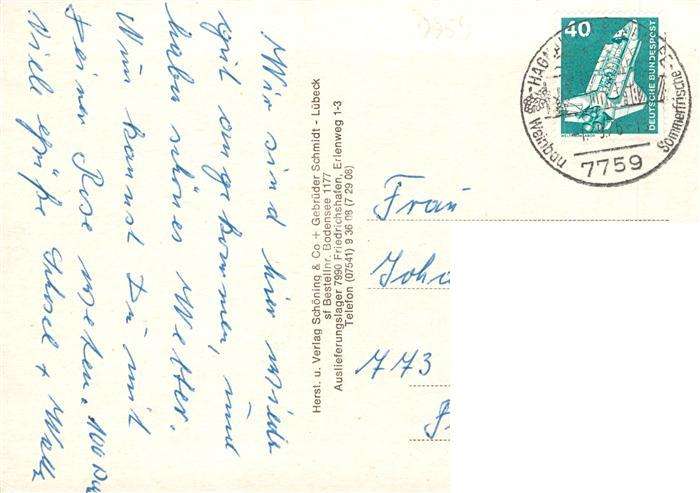 Wir sind hier wieder
gut angekommen, und
haben schönes Wetter.
Nun kannst Du mit
Deiner Rose
Viele Grüße
Herst. u. Verlag Schöning & Co + Gebrüder Schmidt - Lübeck
sf Bestellnr. Bodensee 1177
Auslieferungslager 7990 Friedrichshafen, Erlenweg 1-3
Telefon (07541) 9 36 08 (7 29 08)
40
DEUTSCHE BUNDESPOST
HAG
Weinbau
Sommerfrische
7759
Frau
Joha
773